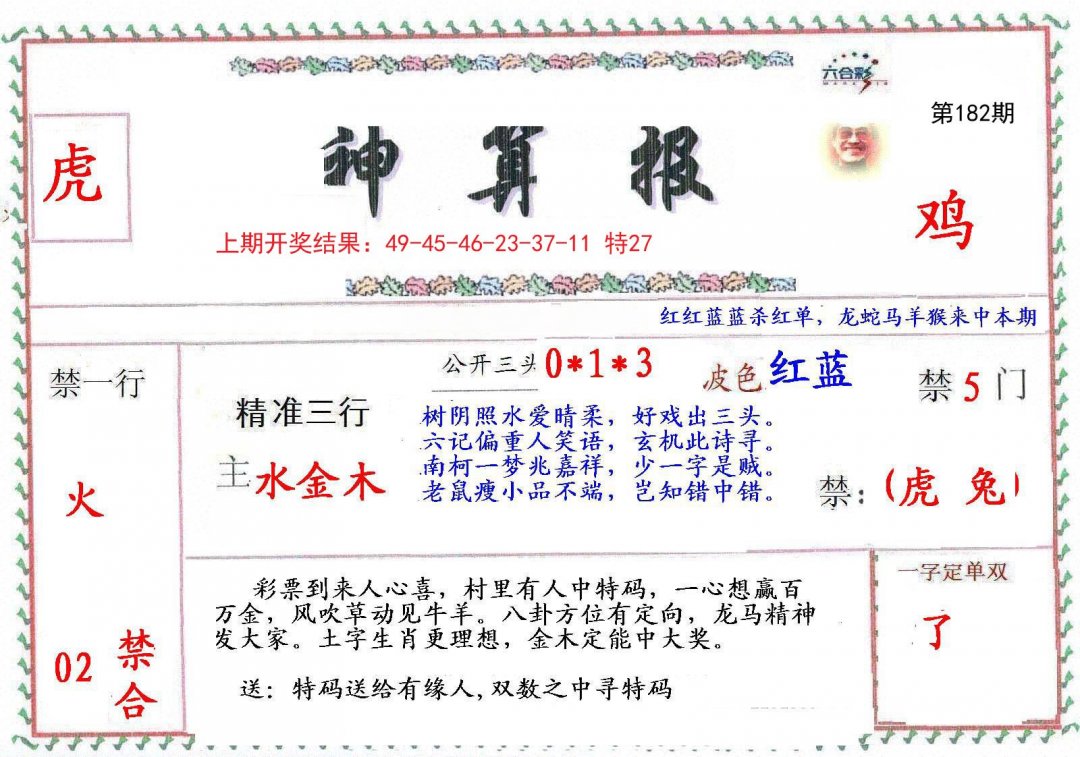 六合彩
第182期
虎
神算报
鸡
上期开奖结果：49-45-46-23-37-11 特27
红红蓝蓝杀红单，龙蛇马羊猴来中本期
禁一行
公开三头 0*1*3
波色 红蓝
禁 5 门
精准三行
树阴照水爱晴柔，好戏出三头。
六记偏重人笑语，玄机此诗寻。
南柯一梦兆嘉祥，少一字是贼。
老鼠瘦小品不端，岂知错中错。
主 水金木
火
禁：(虎 兔)
一字定单双
彩票到来人心喜，村里有人中特码，一心想赢百
万金，风吹草动见牛羊。八卦方位有定向，龙马精神
发大家。土字生肖更理想，金木定能中大奖。
了
02 禁合
送：特码送给有缘人,双数之中寻特码